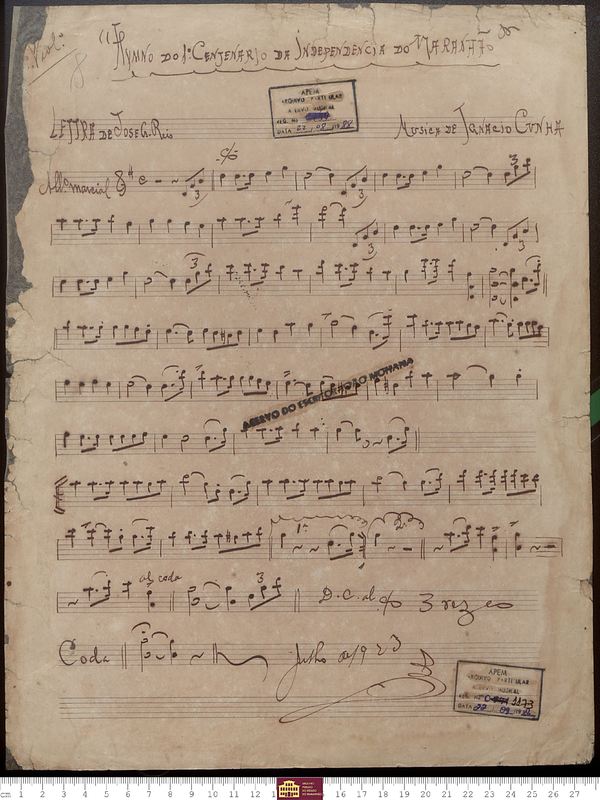 Viol.º
"Hymno do 1º Centenario da Independencia do Maranhão"
APEM
ARQUIVO PARTICULAR
ACERVO MUSICAL
REG. No
DATA 22 / 08 / 1988
Lettra de José G. Reis
Musica de Ignacio Cunha
All.º marcial
3 3 3
3 3
3
ACERVO DO ESCRITOR JOÃO MOHANA
1ª 2ª
al coda
3 D.C. al 3 vezes
Coda
Julho de 1923
APEM
ARQUIVO PARTICULAR
ACERVO MUSICAL
REG. No 1173
DATA 22
cm 1 2 3 4 5 6 7 8 9 10 11 12 16 17 18 19 20 21 22 23 24 25 26 27